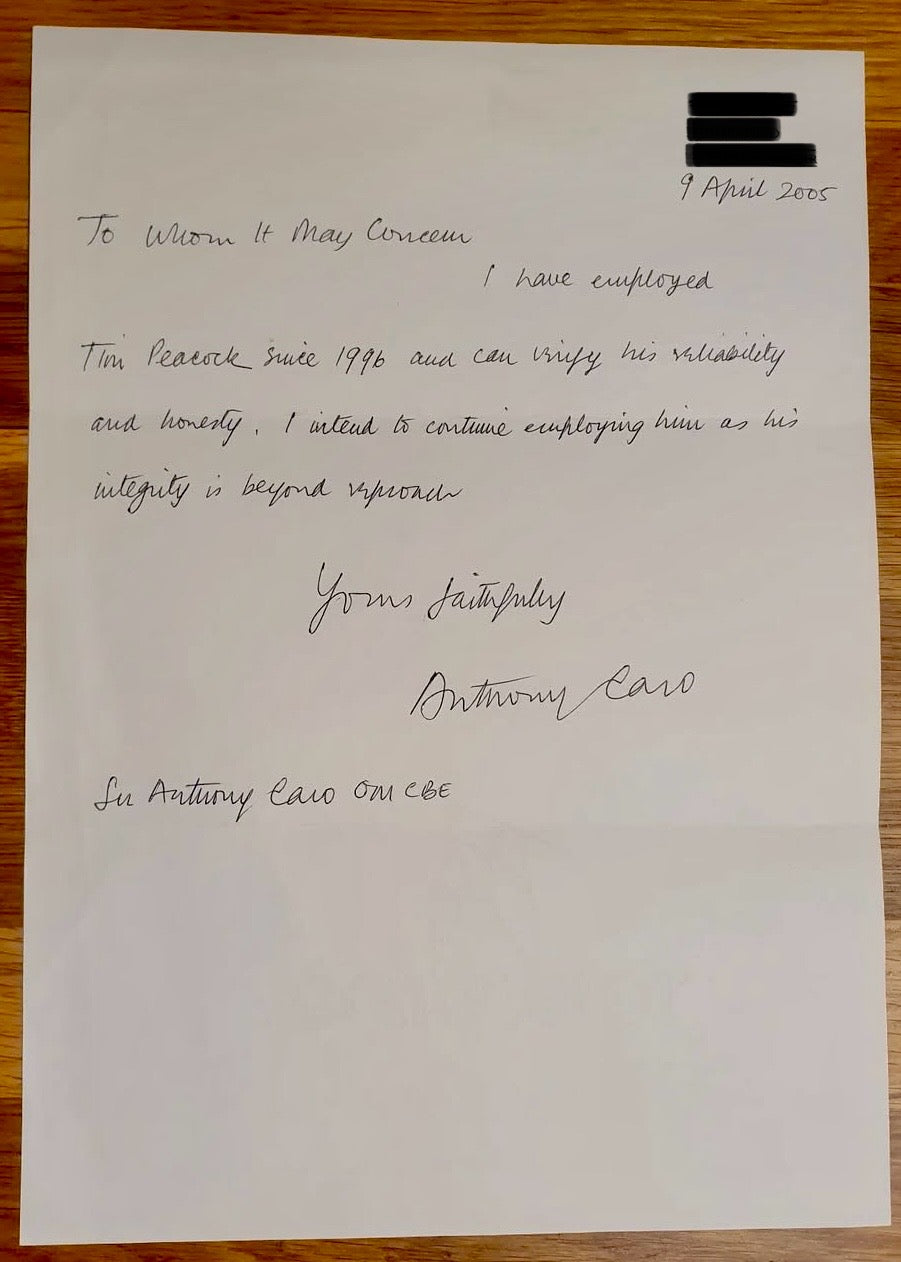 9 April 2005
To Whom It May Concern
I have employed
Tim Peacock since 1996 and can verify his reliability
and honesty. I intend to continue employing him as his
integrity is beyond reproach
Yours faithfully
Anthony Caro
Sir Anthony Caro OM CBE